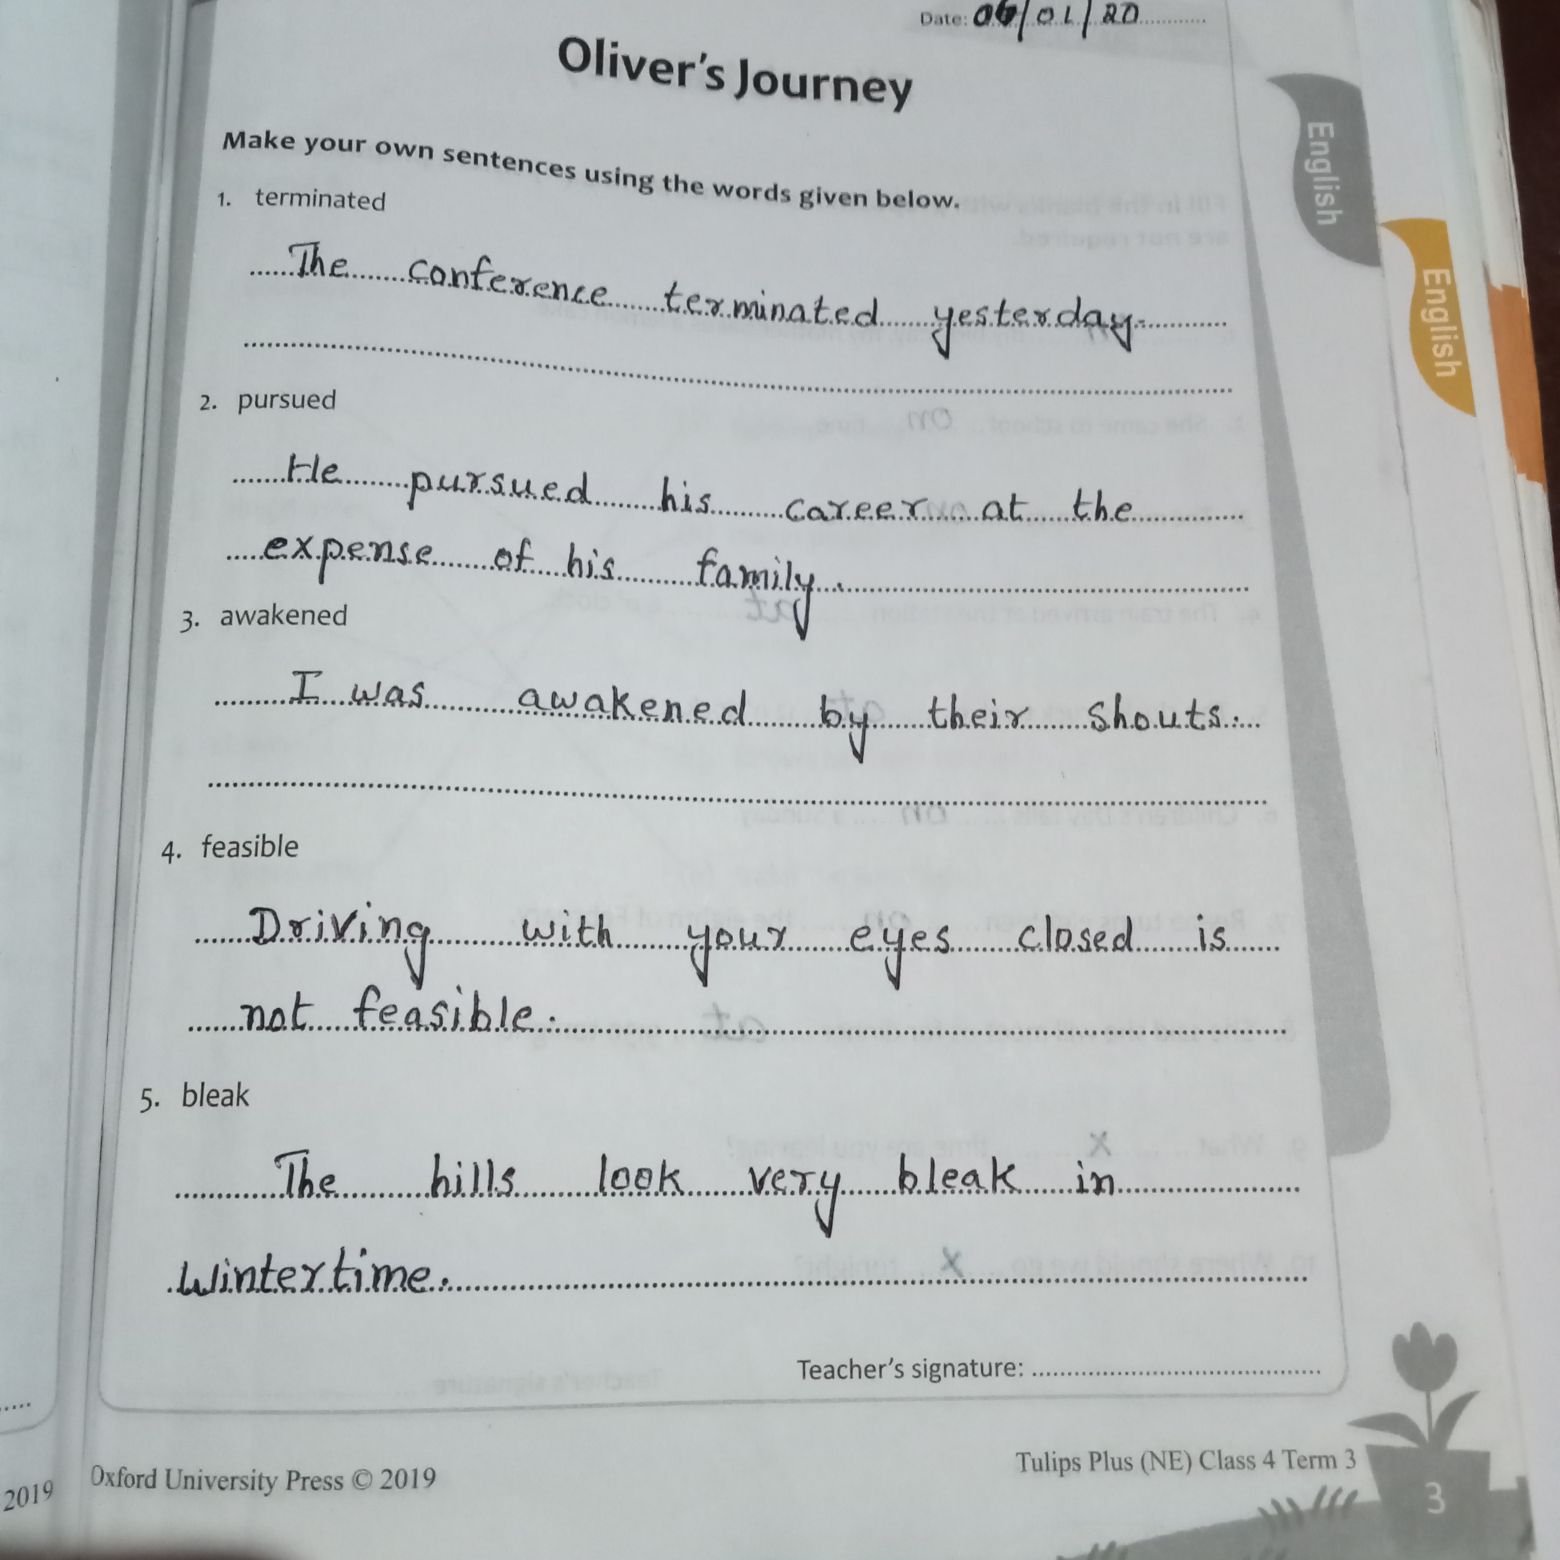 Date: 06/01/20
Oliver's Journey
Make your own sentences using the words given below.
1. terminated
The conference terminated yesterday.
2. pursued
He pursued his career at the
expense of his family.
3. awakened
I was awakened by their shouts.
4. feasible
Driving with your eyes closed is
not feasible.
5. bleak
The hills look very bleak in
wintertime.
Teacher's signature:
Oxford University Press © 2019
Tulips Plus (NE) Class 4 Term 3
3
2019
English
English